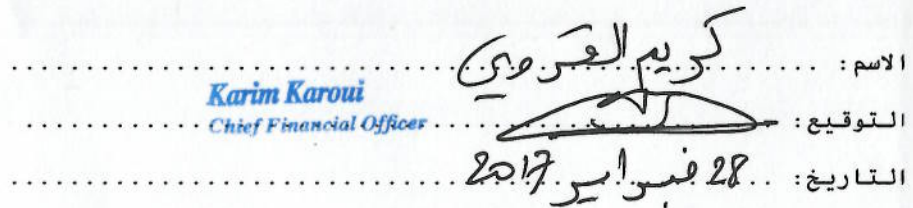 الاسم: كريم القروي
Karim Karoui
التوقيع: Chief Financial Officer
التاريخ: 28 فبراير 2017